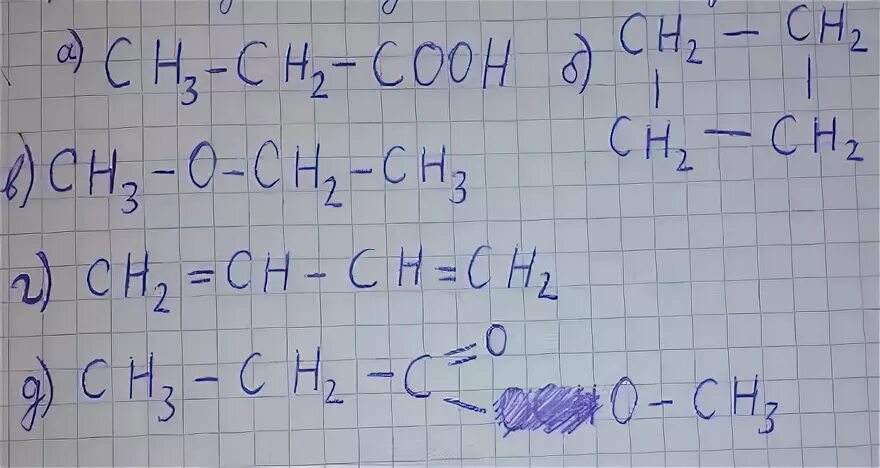 а) CH₃-CH₂-COOH
б) CH₂ - CH₂
| |
CH₂ - CH₂
в) CH₃-O-CH₂-CH₃
г) CH₂=CH-CH=CH₂
д) CH₃-CH₂-C=O
-O-CH₃